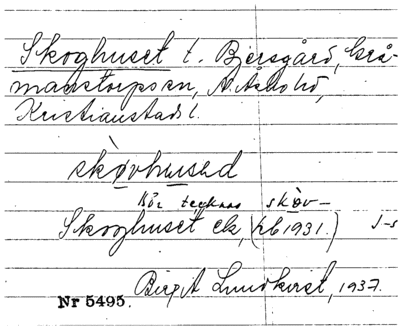 Skoghuset t. Bjersgård, Grå-
manstorps sn, N. Åsbo hd,
Kristianstads l.
skòvhusəd
Bör tecknas skòv-
Skoghuset ek, (jb 1931.) J-s
Birgit Lundkvist, 1937.
Nr 5495.